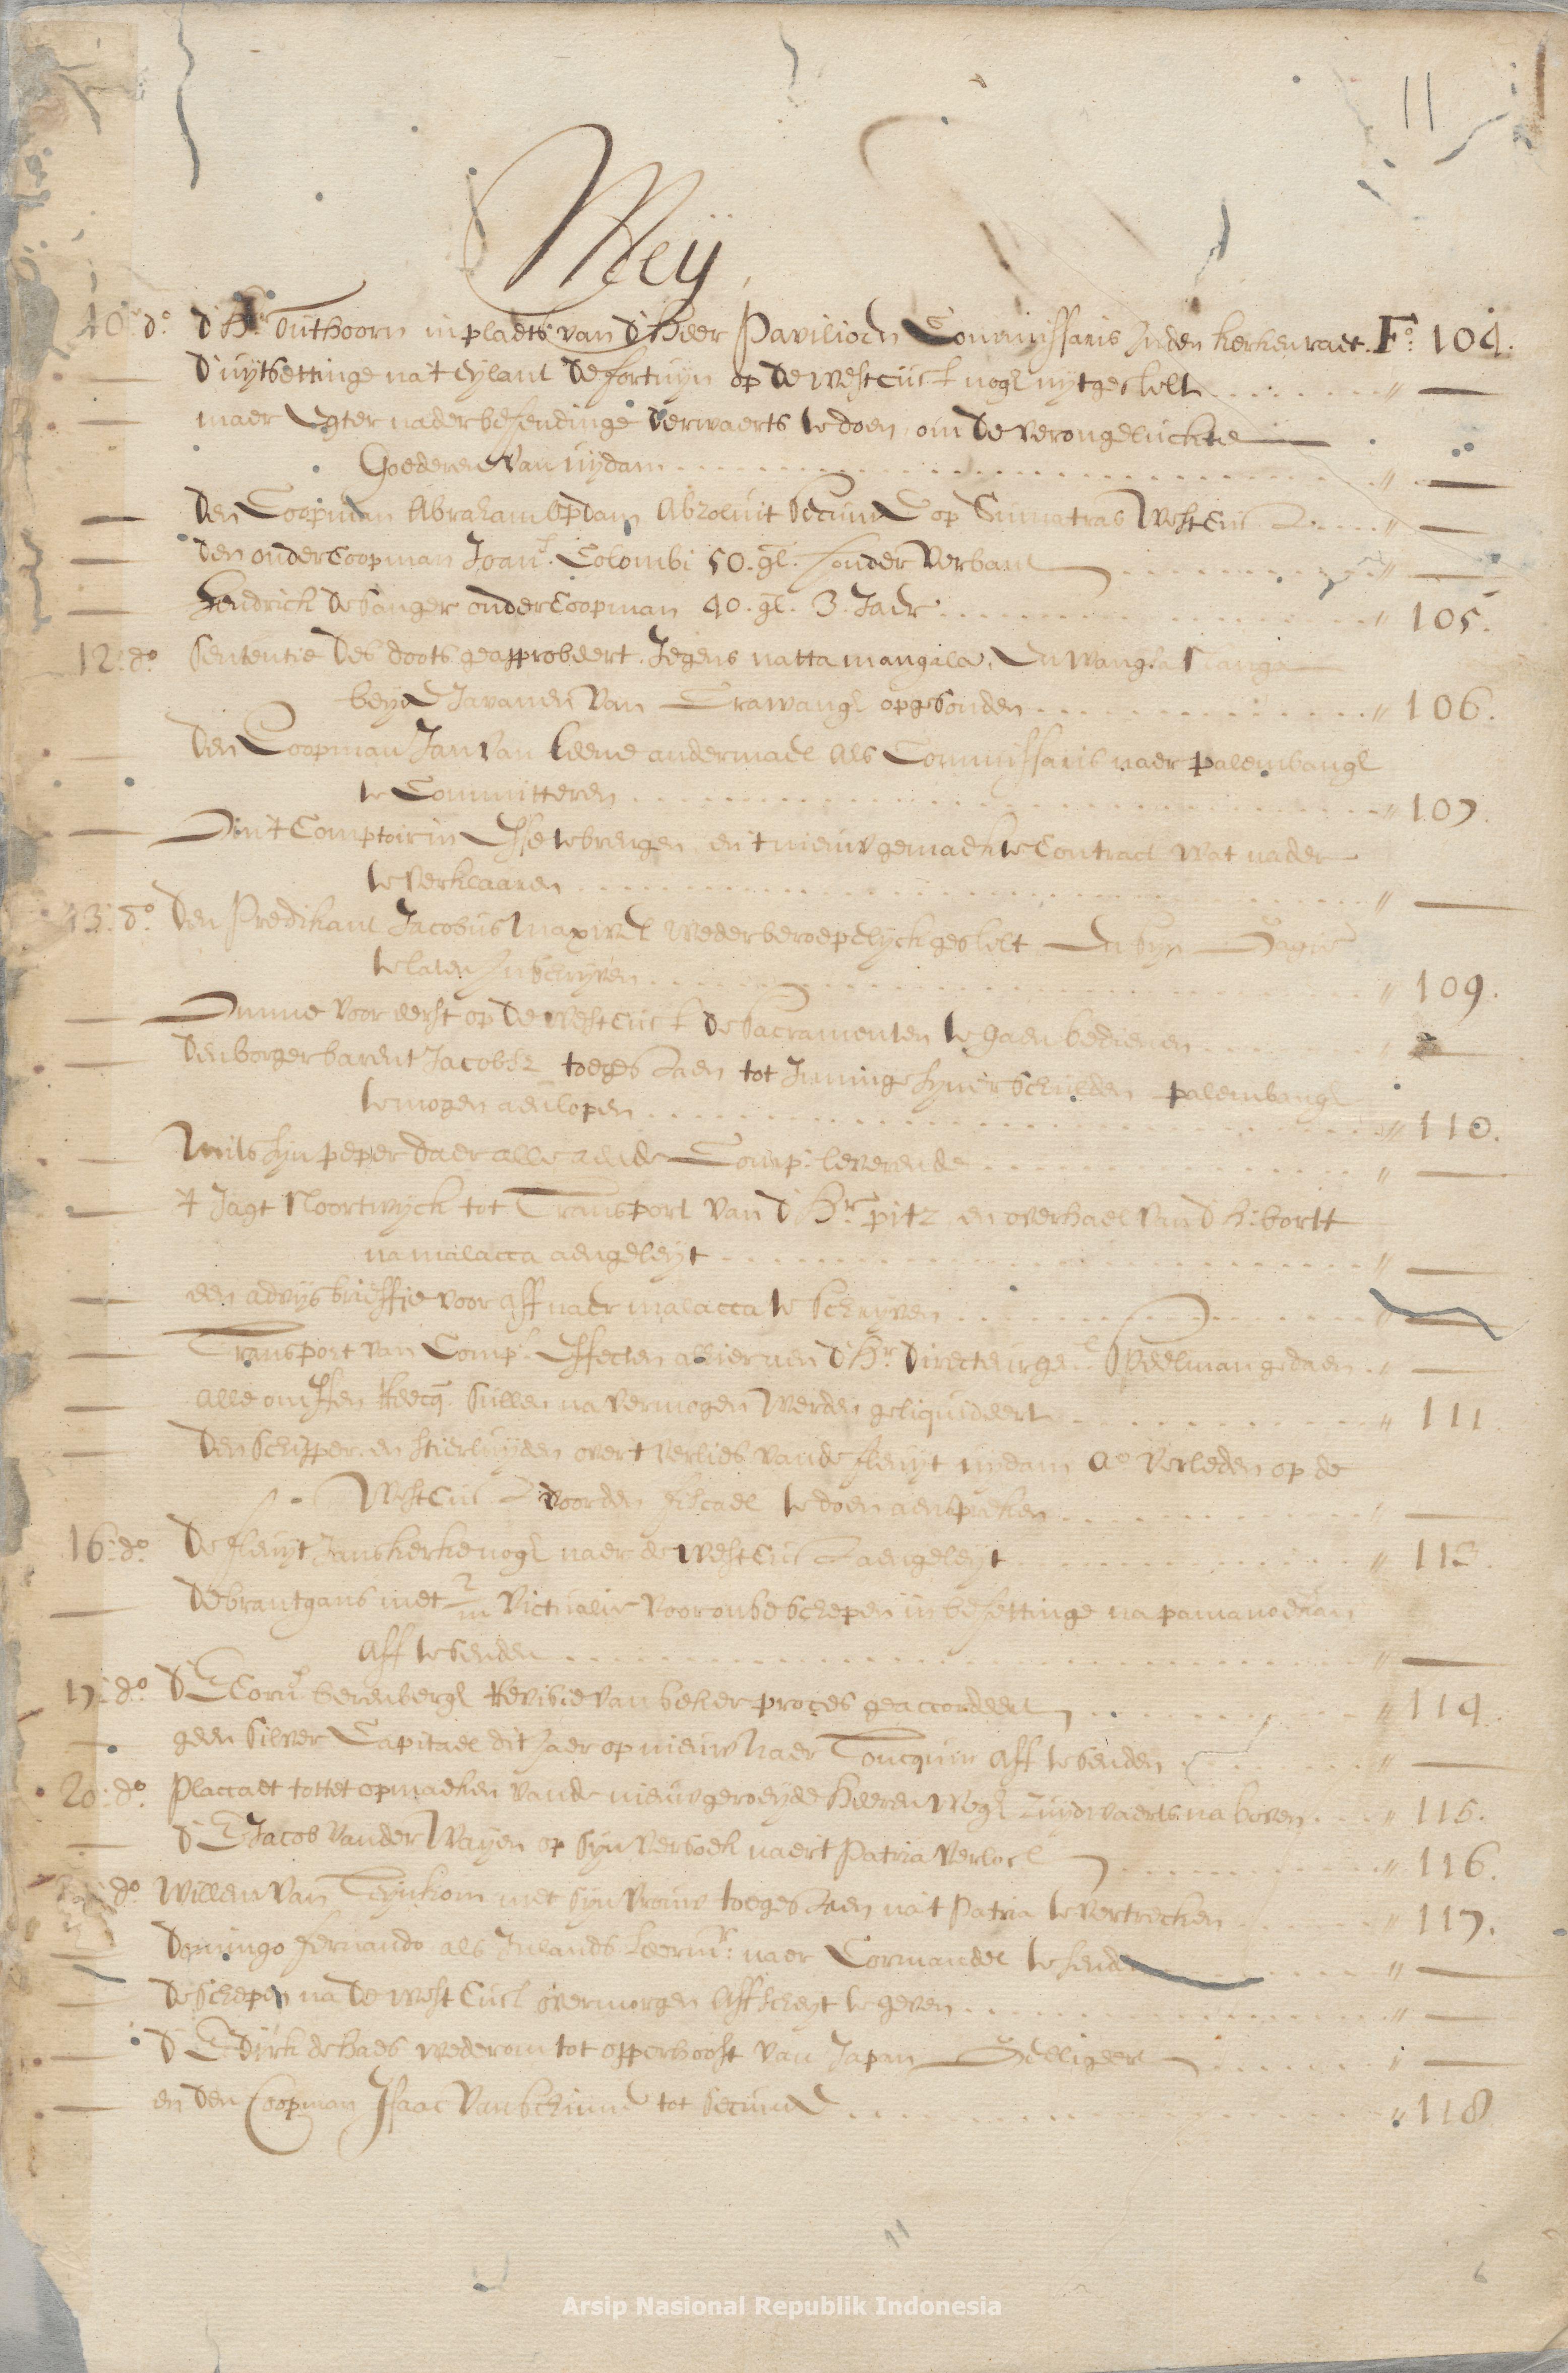 11
Meÿ
10 do. d'Hr. Outhoorn in plaets van d'Heer Pavilioen Commissaris in den kerkenraet. Fo: 104.
— d'uytsettinge na 't Eylant de fortuyn op de west Cust nogh uytgestelt " —
— maer Egter nader besendinge derwaerts te doen, om de verongeluckte
Goederen van uydam " —
— Den Coopman Abraham Opdam Absoluit Secunde op Sumatras West Cust " —
— den onder Coopman Joans. Colombi 50. gl. sonder verbant " —
— Hendrick de Sanger onder Coopman 40. gl. 3. Jaer " 105.
12: do. Sententie des doots geapprobeert Jegens natta mangala, En wangsa
beyde Javanen van Crawangh opgesonden " 106.
— Den Coopman Jan van Leene andermael als Commissaris naer palembangh
te Committeren " 107.
— Om 't Comptoir in Esse te brengen en 't nieuw gemaekte Contract wat nader
te verklaaren " —
13: do. Den Predikant Jacobus weder beroepelyck gestelt En syn Gagie
te laten Inschryven " 109.
— Omme voor eerst op de west Cust de Sacramenten te gaen bedienen " —
— Den borger barent Jacobsz toegestaen tot Inninge syner schulden palembangh
te mogen aenlopen " 110.
— Mits syn peper daer alle aende Comp: leverende " —
— 't Jagt Noortwyck tot Transport van d'Hr. pitz en overhael van d'h: bortt
na malacca aengeleyt " —
— een advysbrieffje voor aff naer malacca te schryven " —
— Transport van Comp: Effecten alhier aen d'Hr. Directeur gel. Speelman gedaen " —
— Alle onuffen sullen na vermogen werden geliquideert " 111
— Den schipper en stierluyden over 't verlies van de fluyt uydam Ao. verleden op de
West Cust voorden fiscael te doen aenspreken " —
16: do. De fluyt Janskerke nogh naer de west Cust aengeleyt " 113.
— De brantgans met 2/m victualie voor onse schepen in besettinge na pamanoekan
aff te senden " —
17: do. d'E Corns. berenbergh Revisie van seker proces geaccordeert " 114.
— geen silver Capitael dit Jaer op nieuw naer Toncquin aff te senden " —
20: do. Placcaet tottet opmaeken vande nieuw geroeyde Heeren Wegh zuydwaerts na boven " 115.
— d'E Jacob vander Wayen op syn versoek naer 't Patria verlost " 116.
do. Willem van Teynkom met syn vrouw toegestaen na 't Patria te vertrecken " 117.
— Domingo fernando als Inlands Leermr: naer Cormandel te senden " —
— De schepen na de west Cust overmorgen Affscheyt te geven " —
— d'E Dirk de haes wederom tot opperhooft van Japan " —
— en den Coopman Isaac van Schinne tot secunde " 118
11
6
Arsip Nasional Republik Indonesia